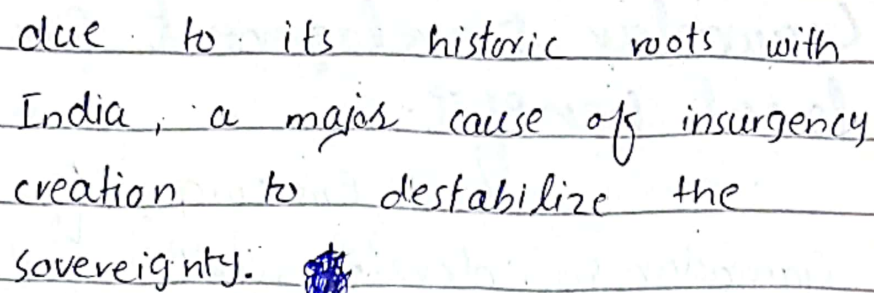 due to its historic roots with
India, a major cause of insurgency
creation to destabilize the
sovereignty.